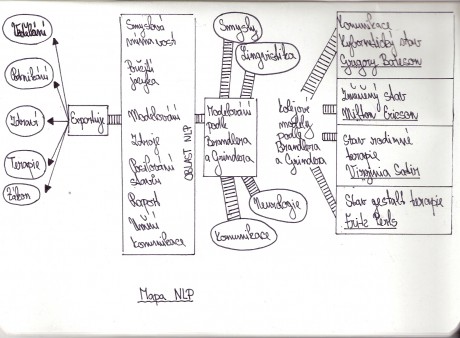 Vzdělání
Podnikání
Zdraví
Terapie
Zákon
Exportuje
Smyslová
vnímavost
Použití
jazyka
Modelování
Zdroje
Posilování
stavů
Raport
Vnitřní
komunikace
OBLAST NLP
Smysly
Lingvistika
Modelování
podle
Brandlera
a Grindera
Neurologie
Komunikace
kolejové
modely
podle
Brandlera
a Grindera
Komunikace
Kybernetický stav
Gregory Bateson
Změněný stav
Milton Ericson
Stav rodinné
terapie
Virginia Satir
Stav gestalt terapie
Fritz Perls
Mapa NLP